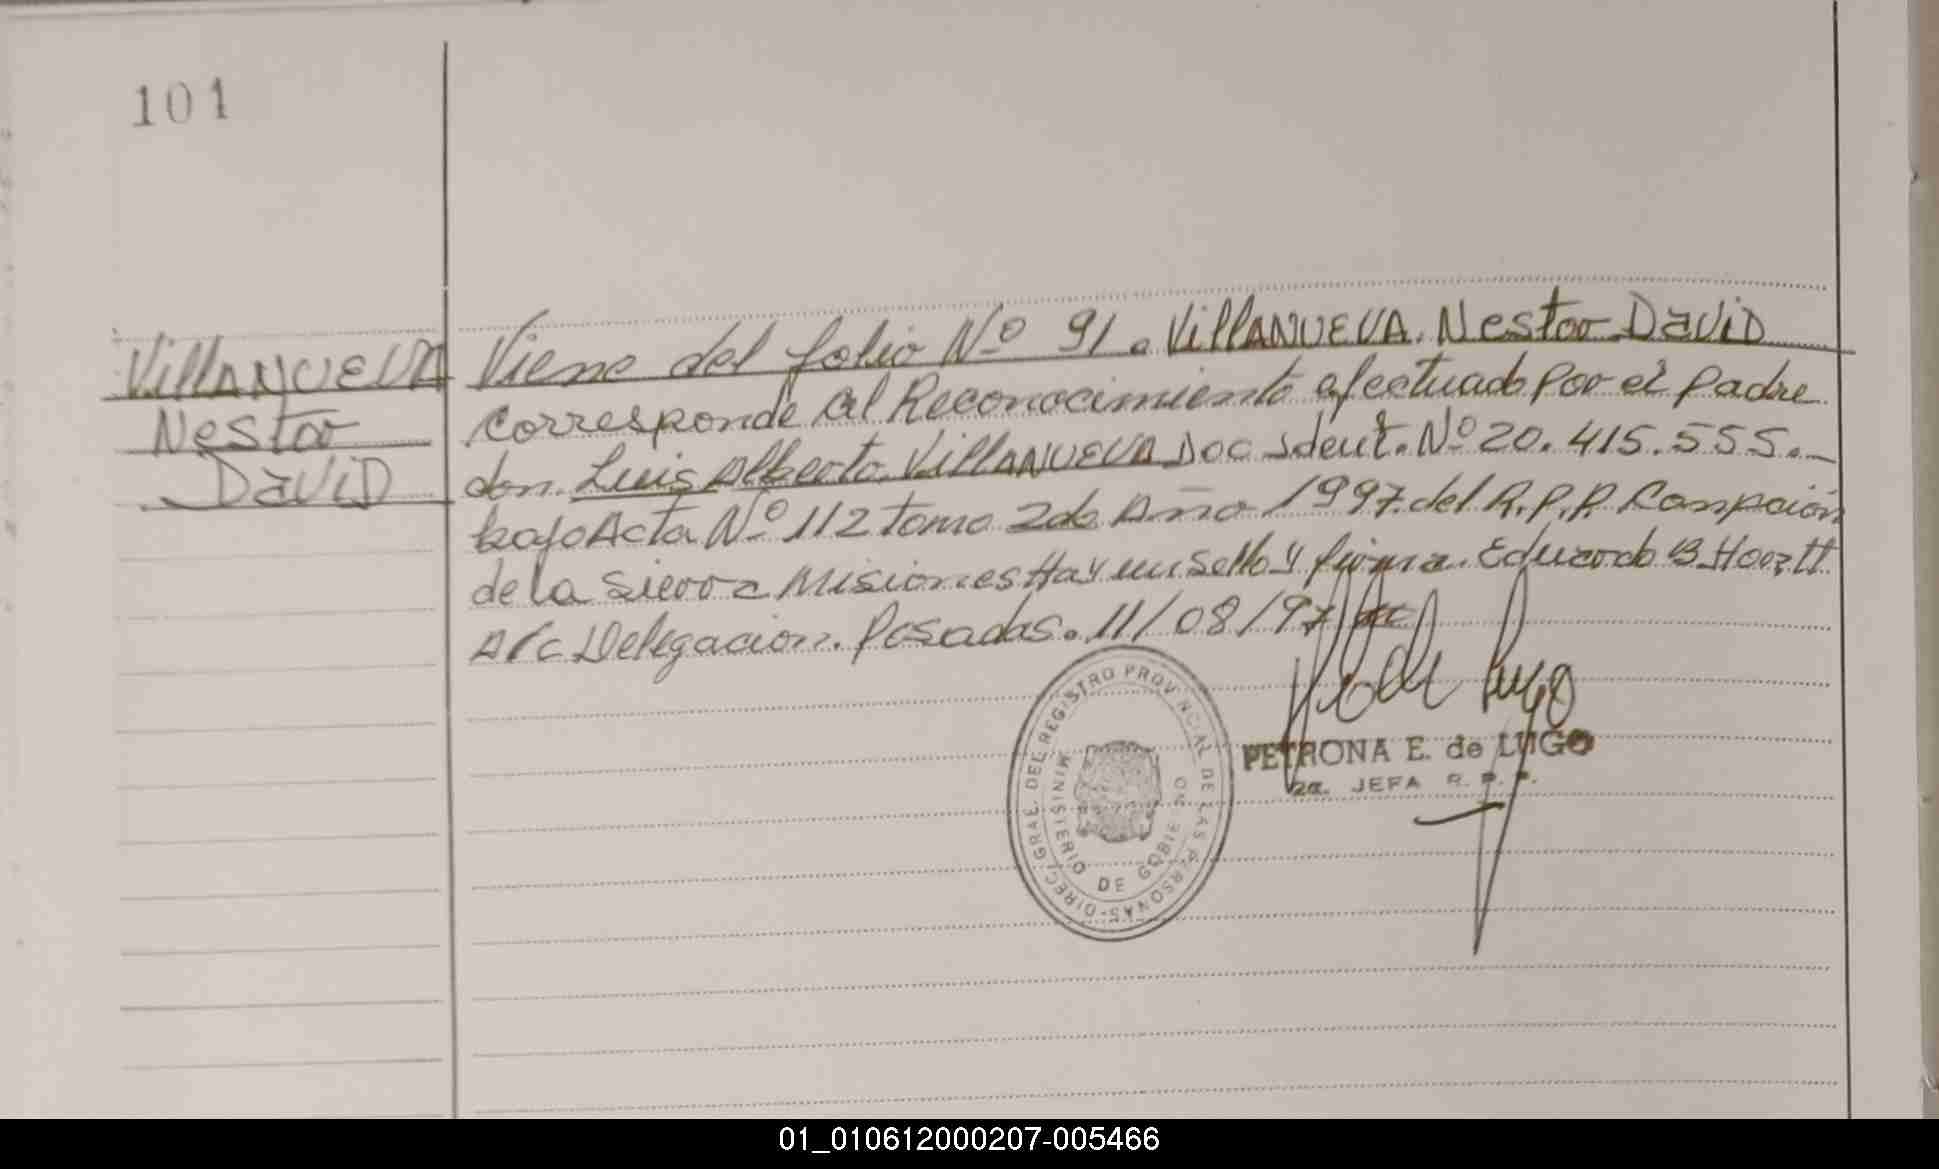 101
VillANUEVA
Nestor
DaviD
Viene del folio Nº 91. VillANUEVA. Nestor DaviD
corresponde al Reconocimiento efectuado por el padre
don. Luis Alberto VillANUEVA Doc Ident. Nº 20.415.555.-
bajo Acta Nº 112 tomo 2do Año 1997 del R.P.P. Concepción
de la Sierra Misiones Hay un sello y firma. Eduardo B
A/c Delegacion. Posadas. 11/08/97
DIREC. GRAL. DEL REGISTRO PROVINCIAL DE LAS PERSONAS-
MINISTERIO DE GOBIERNO
PETRONA E. de LUGO
2a. JEFA R. P. P.
01_010612000207-005466